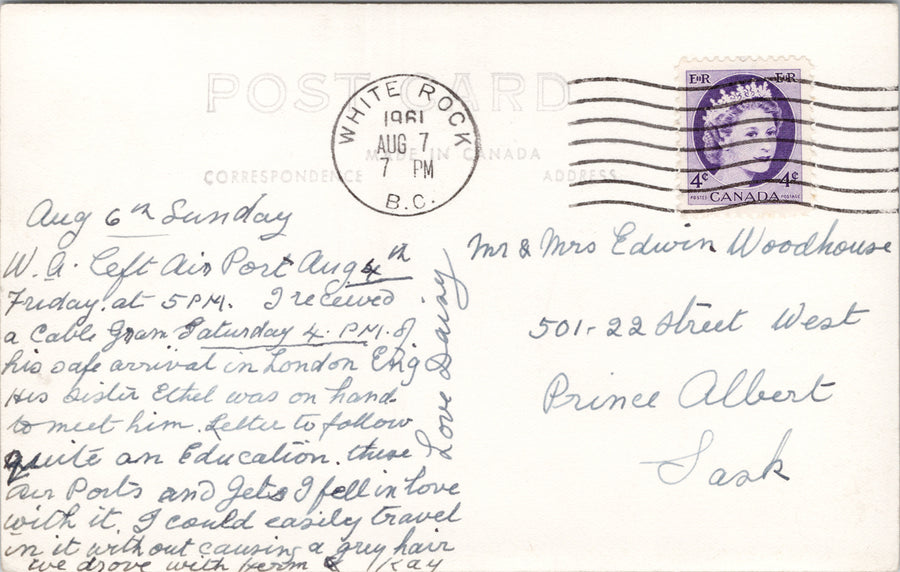 POST CARD
MADE IN CANADA
CORRESPONDENCE
ADDRESS
WHITE ROCK
1961
AUG 7
7 PM
B.C.
EIIR EIIR
4¢ 4¢
POSTES CANADA POSTAGE
Aug 6th Sunday
W. A. Left Air Port Aug 4th
Friday. at 5 PM. I received
a Cable Gram Saturday 4. PM. of
his safe arrival in London Eng
His Sister Ethel was on hand
to meet him. Letter to follow
quite an Education. these
Air Ports and Jets I fell in love
with it. I could easily travel
in it without causing a grey hair
we drove with Herm & Kay
Love Daisy
Mr & Mrs Edwin Woodhouse
501-22 Street West
Prince Albert
Sask